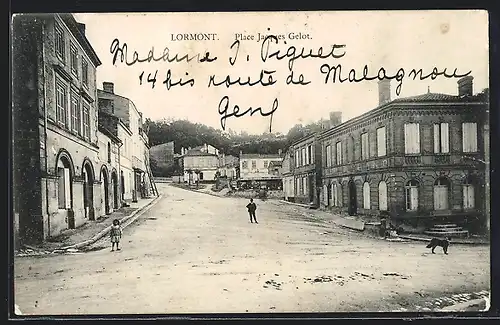 LORMONT. Place Jacques Gelot.
Madame J. Piguet
14 bis route de Malagnou
Genf